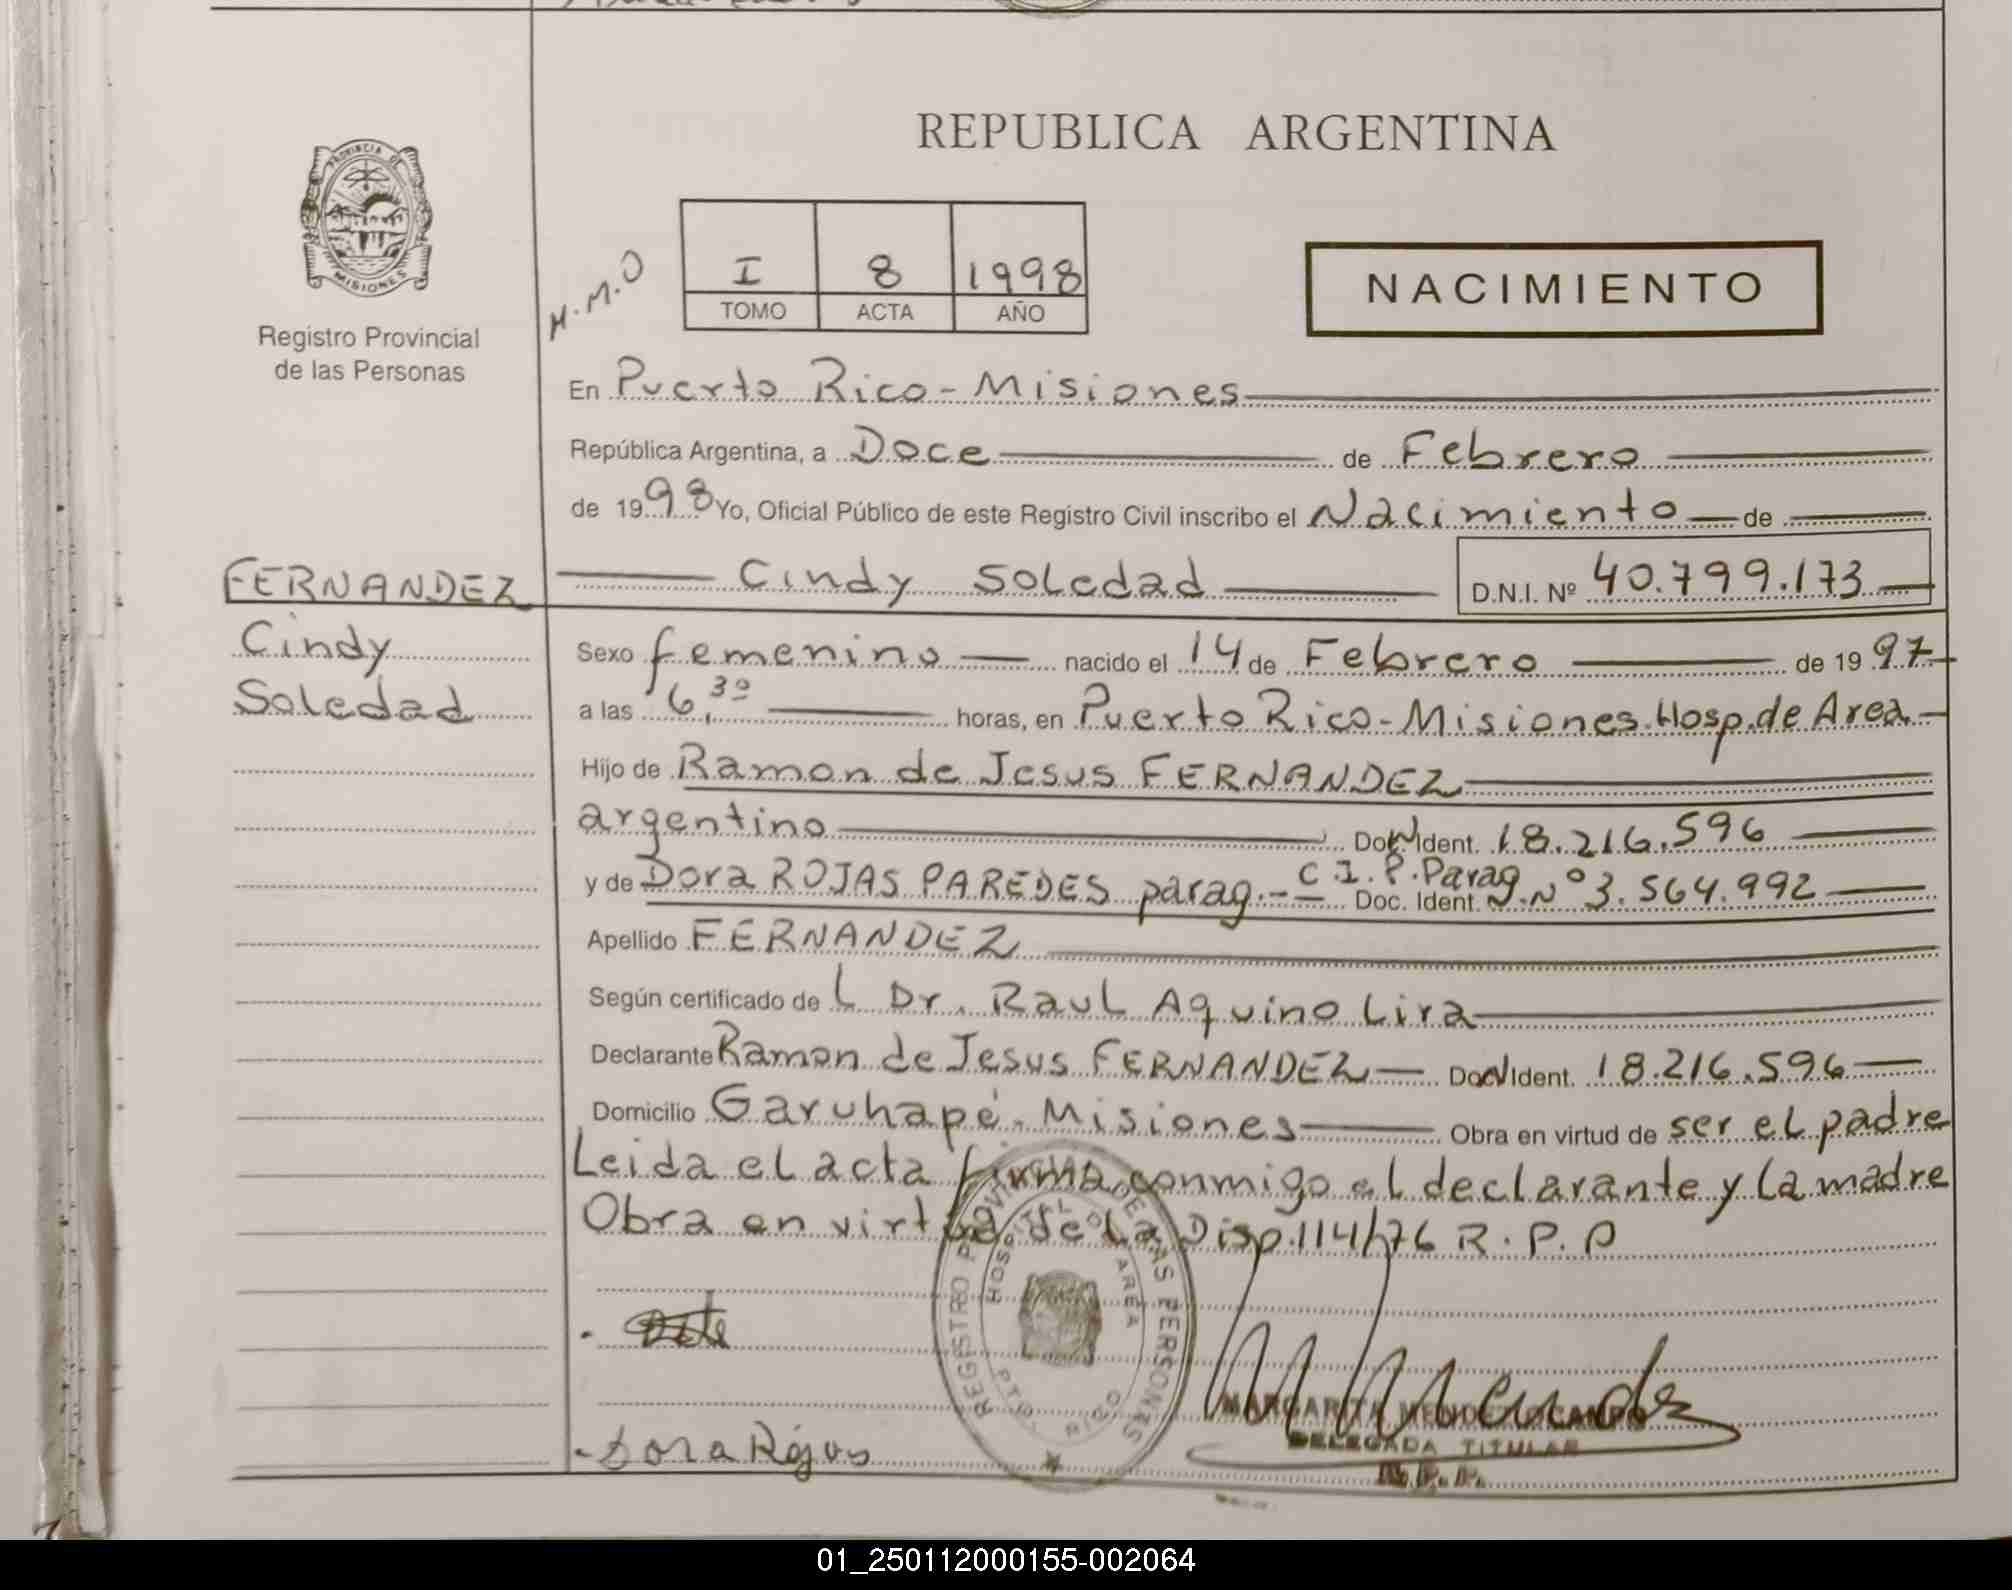 REPUBLICA ARGENTINA
PROVINCIA DE
MISIONES
Registro Provincial
de las Personas
M.M.O
I 8 1998
TOMO ACTA AÑO
NACIMIENTO
En Puerto Rico - Misiones
República Argentina, a Doce de Febrero
de 1998 Yo, Oficial Público de este Registro Civil inscribo el Nacimiento de
FERNANDEZ
Cindy
Soledad
Cindy Soledad D.N.I. Nº 40.799.173
Sexo femenino nacido el 14 de Febrero de 1997
a las 6,30 horas, en Puerto Rico - Misiones. Hosp. de Area
Hijo de Ramon de Jesus FERNANDEZ
argentino Doc. Ident. 18.216.596
y de Dora ROJAS PAREDES parag. - C.I.P. Parag. Doc. Ident. Nº 3.564.992
Apellido FERNANDEZ
Según certificado de l Dr. Raul Aquino Lira
Declarante Ramon de Jesus FERNANDEZ Doc. Ident. 18.216.596
Domicilio Garuhapé - Misiones Obra en virtud de ser el padre
Leida el acta firma conmigo el declarante y la madre
Obra en virtud de la Disp. 114/76 R.P.P
REGISTRO PROVINCIAL DE LAS PERSONAS
HOSPITAL DE AREA
PTO. RICO
Dora Rojas
MARGARITA MENDEZ OCAMPO
DELEGADA TITULAR
R.P.P.
01_250112000155-002064